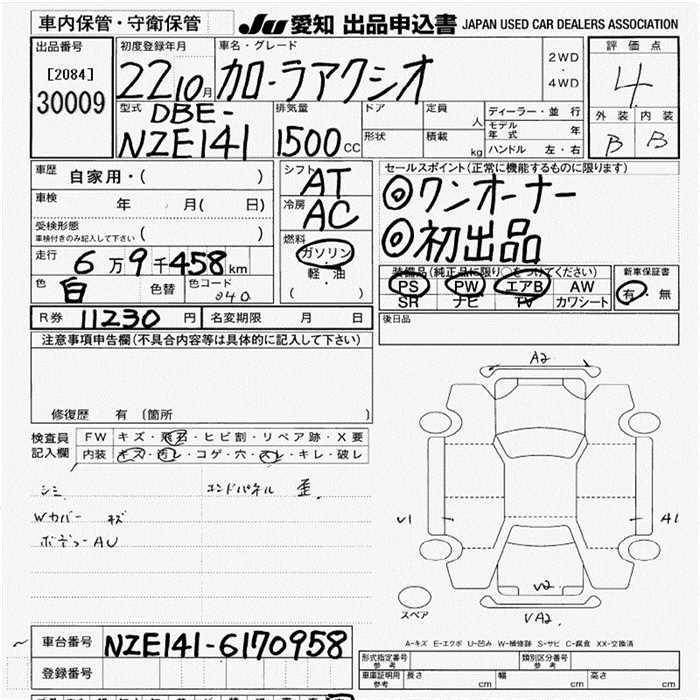 車内保管・守衛保管
JU 愛知 出品申込書 JAPAN USED CAR DEALERS ASSOCIATION
出品番号
[2084]
30009
初度登録年月
22 10月
車名・グレード
カローラアクシオ
2WD
・
4WD
評価点
4
外装 内装
B B
型式
DBE-
NZE141
排気量
1500 CC
ドア
形状
定員
人
積載
kg
ディーラー・並行
モデル年式 年
ハンドル 左・右
車歴
自家用・( )
車検
年 月( 日)
受検形態
車検付きのみ記入して下さい ( )
走行
6万9千458km
色
白
色替
色コード
040
シフト
AT
冷房
AC
燃料
ガソリン
・
軽・油
( )
セールスポイント(正常に機能するものに限ります)
◎ワンオーナー
◎初出品
装備品(純正品に限り○をつけてください)
PS PW エアB AW
SR ナビ TV カワシート
新車保証書
有・無
R券 11230 円
名変期限 月 日
後日品
注意事項申告欄(不具合内容等は具体的に記入して下さい)
修復歴 有 〔箇所 〕
検査員
記入欄
FW キズ・飛石・ヒビ割・リペア跡・X要
内装 キズ・汚レ・コゲ・穴・スレ・キレ・破レ
シミ
エンドパネル 歪
Wカバー キズ
ボデーAU
A2
V1
A1
V2
VA2
スペア
A-キズ E-エクボ U-凹み W-補修跡 S-サビ C-腐食 XX-交換済
車台番号 NZE141-6170958
登録番号
形式指定番号
参考
類別区分番号
参考
車庫証明用
参考
長さ cm
幅 cm
高さ cm